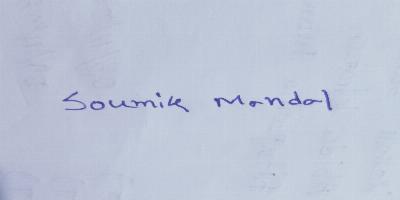 Soumik Mandal